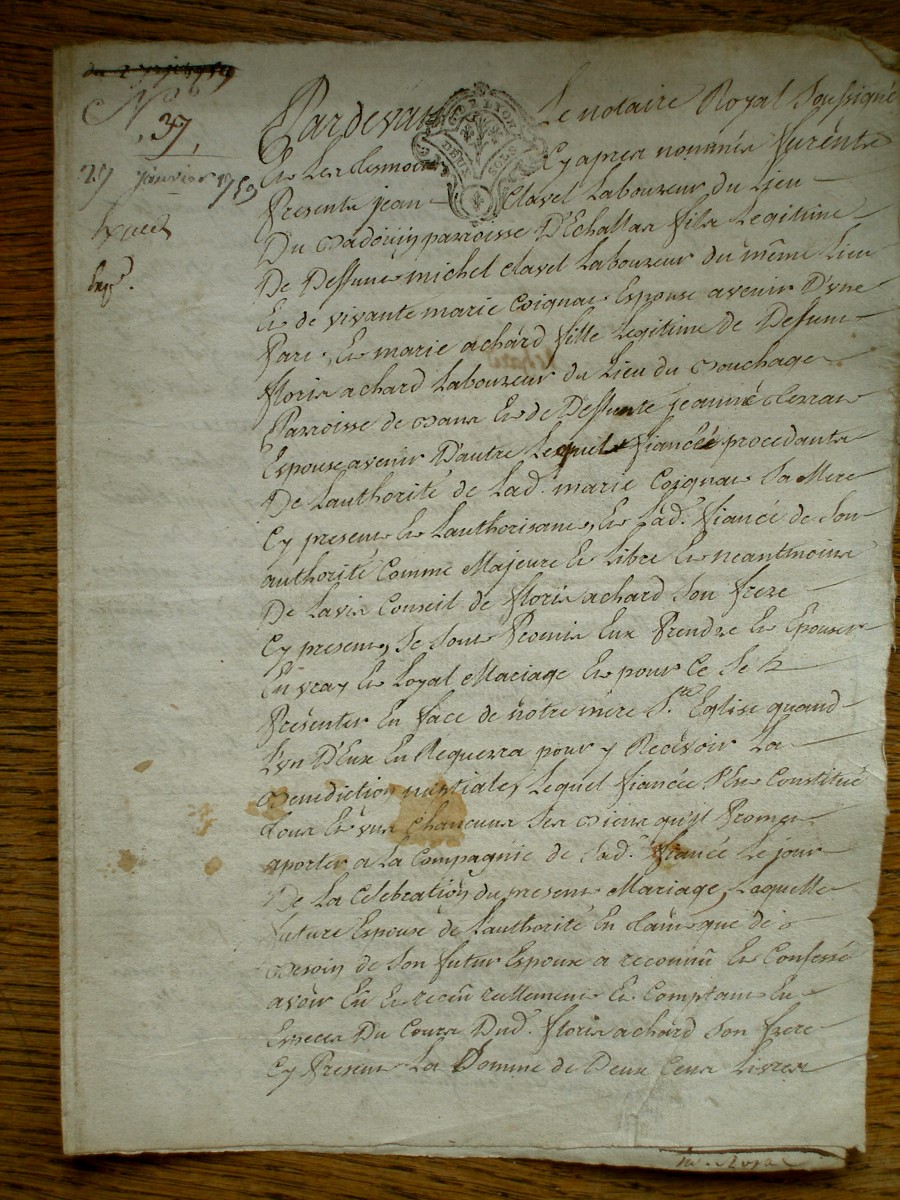 N° 6
37
27 janvier 1759
Pardevant Le notaire Royal Soussigné
GEN DE LYON
DEUX SOLS
Et Les tesmoins Cy apres nommés furent
Presents jean Clavel Laboureur du Lieu
Du parroisse D'Echallas fils Legitime
De Deffunt michel Clavel Laboureur du même Lieu
Et de vivante marie Coignat Espoux avenir D'une
Part, Et marie achard fille Legitime de Deffunt
floris achard Laboureur du Lieu du Bouchage
Parroisse de Et de Deffunte jeanne
Espouse avenir D'autre Lequel fiancée procedants
De Lauthorité de Lad. marie Coignat Sa Mere
Cy presente Et Lauthorisant, Et Lad. fiancée de Son
authorité Comme Majeure Et Libre Et neantmoins
De Lavis Conseil de floris achard Son frere
Cy present, Se Sont Promis Eux Prendre Et Epouser
En vray Et Loyal Mariage Et pour Ce Se
Présenter En face de nôtre mere Ste Eglise quand
L'un D'Eux En Requerra pour y Recevoir La
Benediction nuptiale, Lequel fiancée S'est Constitué
Tous Et uns Chacuns Ses Biens qu'il Promet
aporter a La Compagnie de Lad. fiancée Le jour
De La Celebration du present Mariage, Laquelle
future Espouse de Lauthorité En tant que de
Besoin de Son futur Espoux a reconnu Et Confessé
avoir Eü Et receu reellement Et Comptant En
Especes Du Cours Dud. floris achard Son frere
Cy Present La Somme de Deux Cens Livres